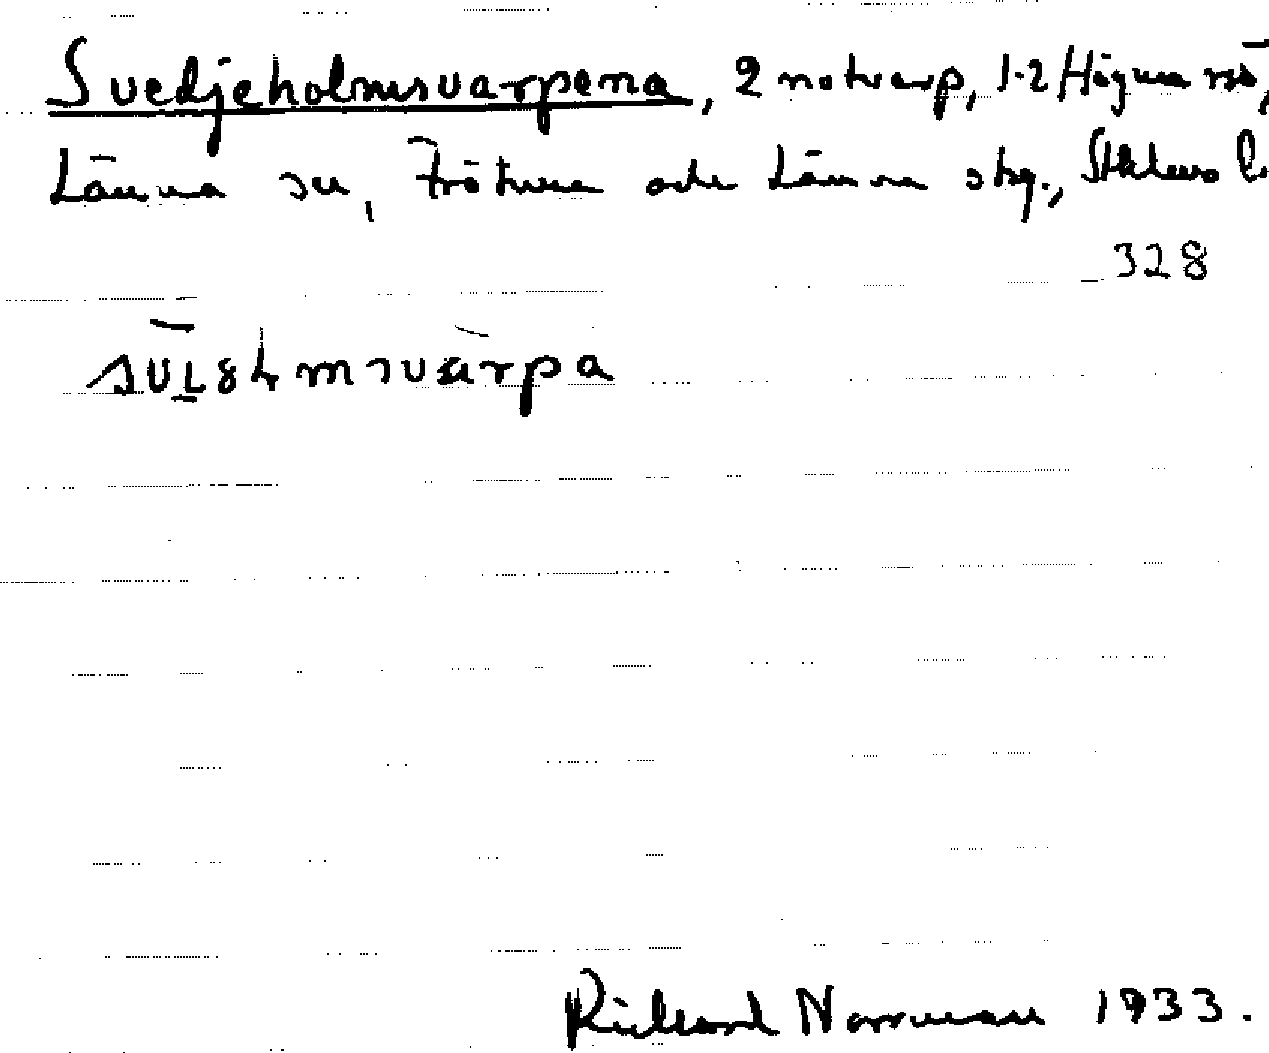 Svedjeholmsvarpena, 2 notvarp, 1-2 Högmarsö,
Länna sn, Frötuna och Länna skg., Sthlms l.
328
Rickard Norrman 1933.